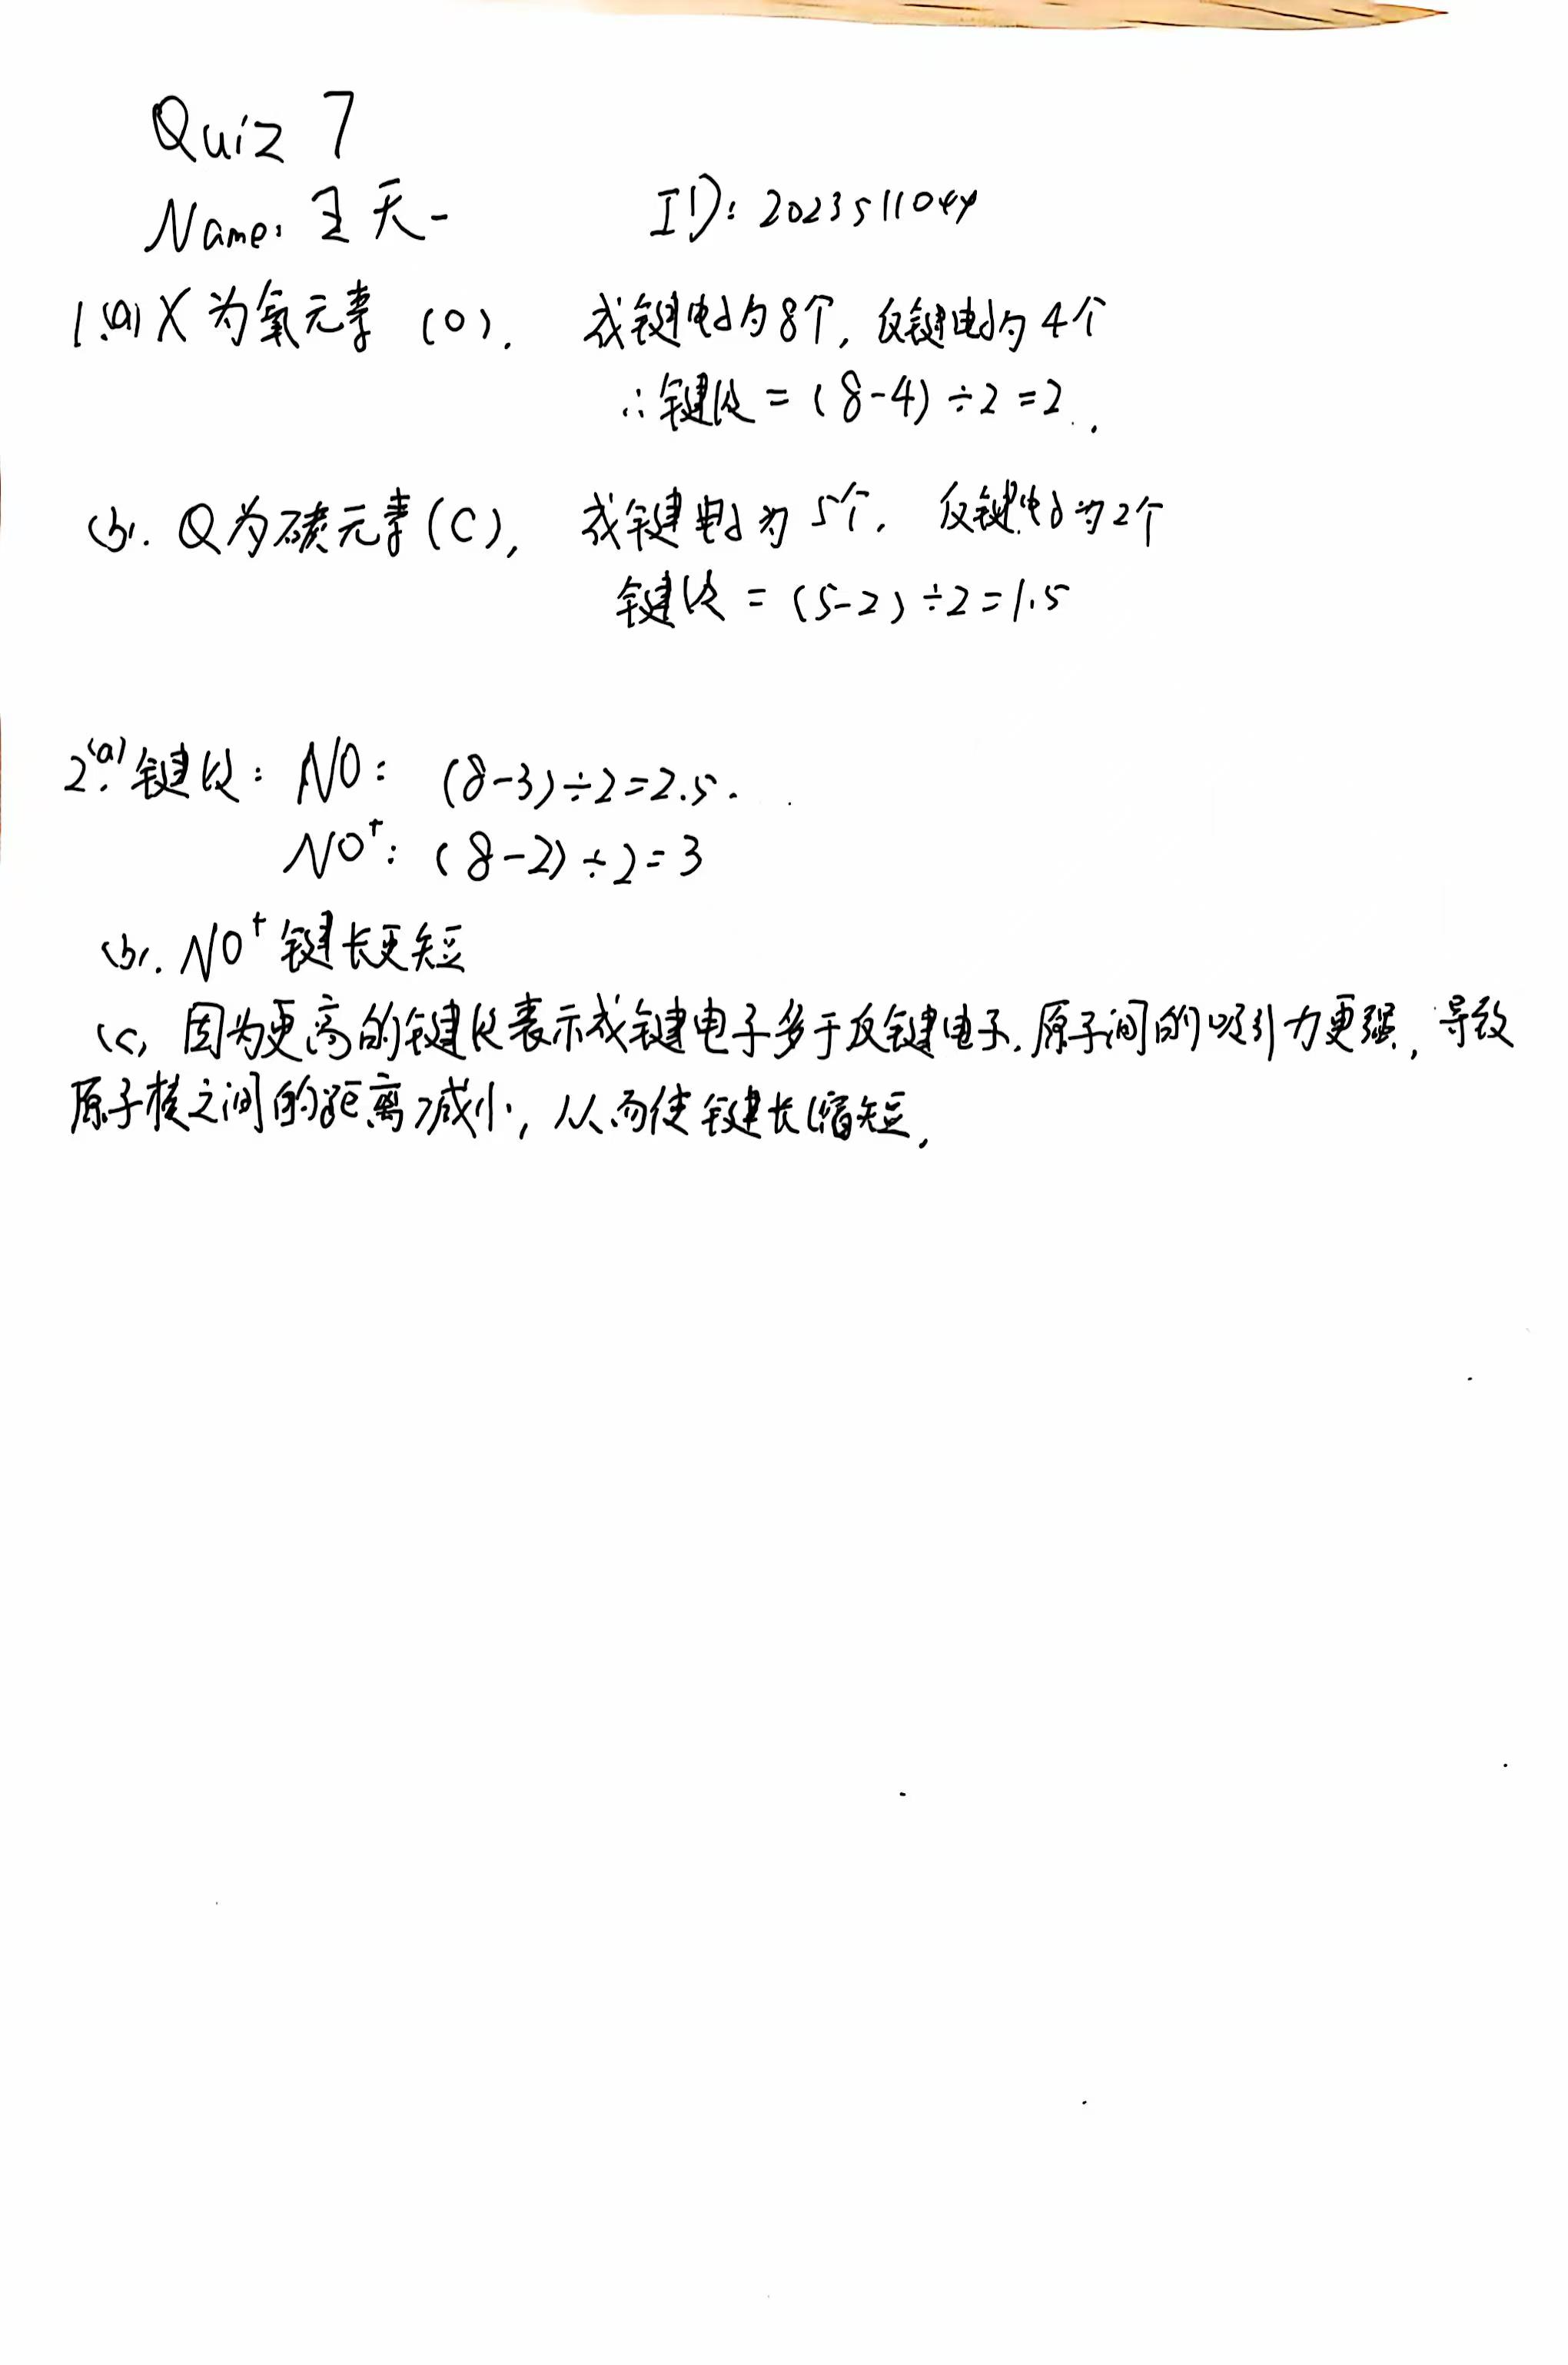 Quiz 7
Name: 王天一 ID: 2023511044
1.(a) X 为氧元素 (O). 成键电子为8个, 反键电子为4个
∴键级 = (8-4)÷2=2.
(b). Q为碳元素(C), 成键电子为5个. 反键电子为2个
键级 = (5-2)÷2=1.5
2.(a) 键级: NO: (8-3)÷2=2.5.
NO⁺: (8-2)÷2=3
(b). NO⁺ 键长更短
(c) 因为更高的键级表示成键电子多于反键电子.原子间的吸引力更强, 导致
原子核之间的距离减小, 从而使键长缩短.